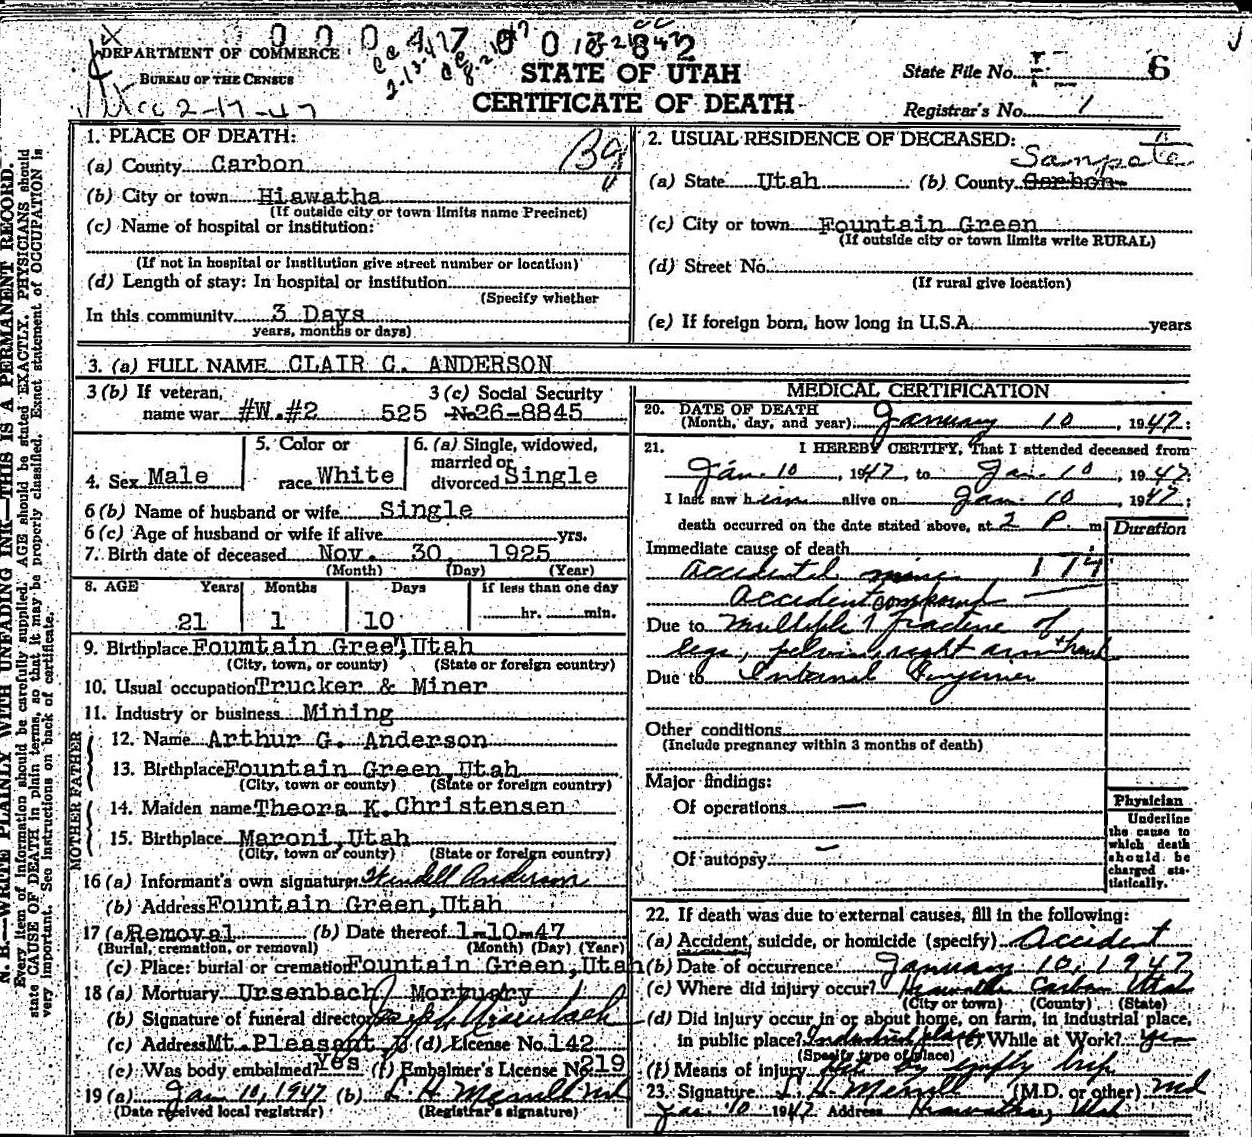 DEPARTMENT OF COMMERCE
BUREAU OF THE CENSUS
2-17-47
STATE OF UTAH
CERTIFICATE OF DEATH
State File No. 6
Registrar's No. 1
N. B.—WRITE PLAINLY WITH UNFADING INK—THIS IS A PERMANENT RECORD.
Every item of information should be carefully supplied. AGE should be stated EXACTLY. PHYSICIANS should
state CAUSE OF DEATH in plain terms, so that it may be properly classified. Exact statement of OCCUPATION is
very important. See instructions on back of certificate.
1. PLACE OF DEATH:
(a) County Carbon
(b) City or town Hiawatha
(If outside city or town limits name Precinct)
(c) Name of hospital or institution:
(If not in hospital or institution give street number or location)
(d) Length of stay: In hospital or institution
(Specify whether
In this community 3 Days
years, months or days)
2. USUAL RESIDENCE OF DECEASED:
Sanpete
(a) State Utah (b) County Carbon
(c) City or town Fountain Green
(If outside city or town limits write RURAL)
(d) Street No.
(If rural give location)
(e) If foreign born, how long in U.S.A. years
3. (a) FULL NAME CLAIR C. ANDERSON
3 (b) If veteran, 3 (c) Social Security
name war #W.#2 525 No. 26-8845
4. Sex Male
5. Color or
race White
6. (a) Single, widowed,
married or
divorced Single
6 (b) Name of husband or wife Single
6 (c) Age of husband or wife if alive yrs.
7. Birth date of deceased Nov. 30, 1925
(Month) (Day) (Year)
8. AGE Years Months Days If less than one day
21 1 10 hr. min.
9. Birthplace Fountain Green, Utah
(City, town, or county) (State or foreign country)
10. Usual occupation Trucker & Miner
11. Industry or business Mining
FATHER
12. Name Arthur G. Anderson
13. Birthplace Fountain Green, Utah
(City, town or county) (State or foreign country)
MOTHER
14. Maiden name Theora K. Christensen
15. Birthplace Maroni, Utah
(City, town or county) (State or foreign country)
16 (a) Informant's own signature Wendell Anderson
(b) Address Fountain Green, Utah
17 (a) Removal (b) Date thereof 1-10-47
(Burial, cremation, or removal) (Month) (Day) (Year)
(c) Place: burial or cremation Fountain Green, Utah
18 (a) Mortuary Ursenbach Mortuary
(b) Signature of funeral director Joseph Ursenbach
(c) Address Mt. Pleasant U (d) License No. 142
(e) Was body embalmed? Yes (f) Embalmer's License No. 219
19 (a) Jan 10, 1947 (b) L. H. Merrill md
(Date received local registrar) (Registrar's signature)
MEDICAL CERTIFICATION
20. DATE OF DEATH
(Month, day, and year) January 10, 1947:
21. I HEREBY CERTIFY, That I attended deceased from
Jan. 10, 1947, to Jan. 10 1947:
I last saw him alive on Jan. 10 1947:
death occurred on the date stated above, at 2 P. m
Duration
Immediate cause of death
Accidental mine
accident compound
Due to multiple fracture of
legs, pelvis, right arm + hand
Due to Internal Injuries
Other conditions
(Include pregnancy within 3 months of death)
Major findings:
Of operations —
Of autopsy —
Physician
Underline
the cause to
which death
should be
charged sta-
tistically.
22. If death was due to external causes, fill in the following:
(a) Accident, suicide, or homicide (specify) Accident
(b) Date of occurrence January 10, 1947
(c) Where did injury occur? Hiawatha Carbon Utah
(City or town) (County) (State)
(d) Did injury occur in or about home, on farm, in industrial place,
in public place? Industrial place While at Work? yes
(Specify type of place)
(f) Means of injury Hit by empty trip
23. Signature L. H. Merrill (M.D. or other) md
Jan. 10 1947 Address Hiawatha, Utah